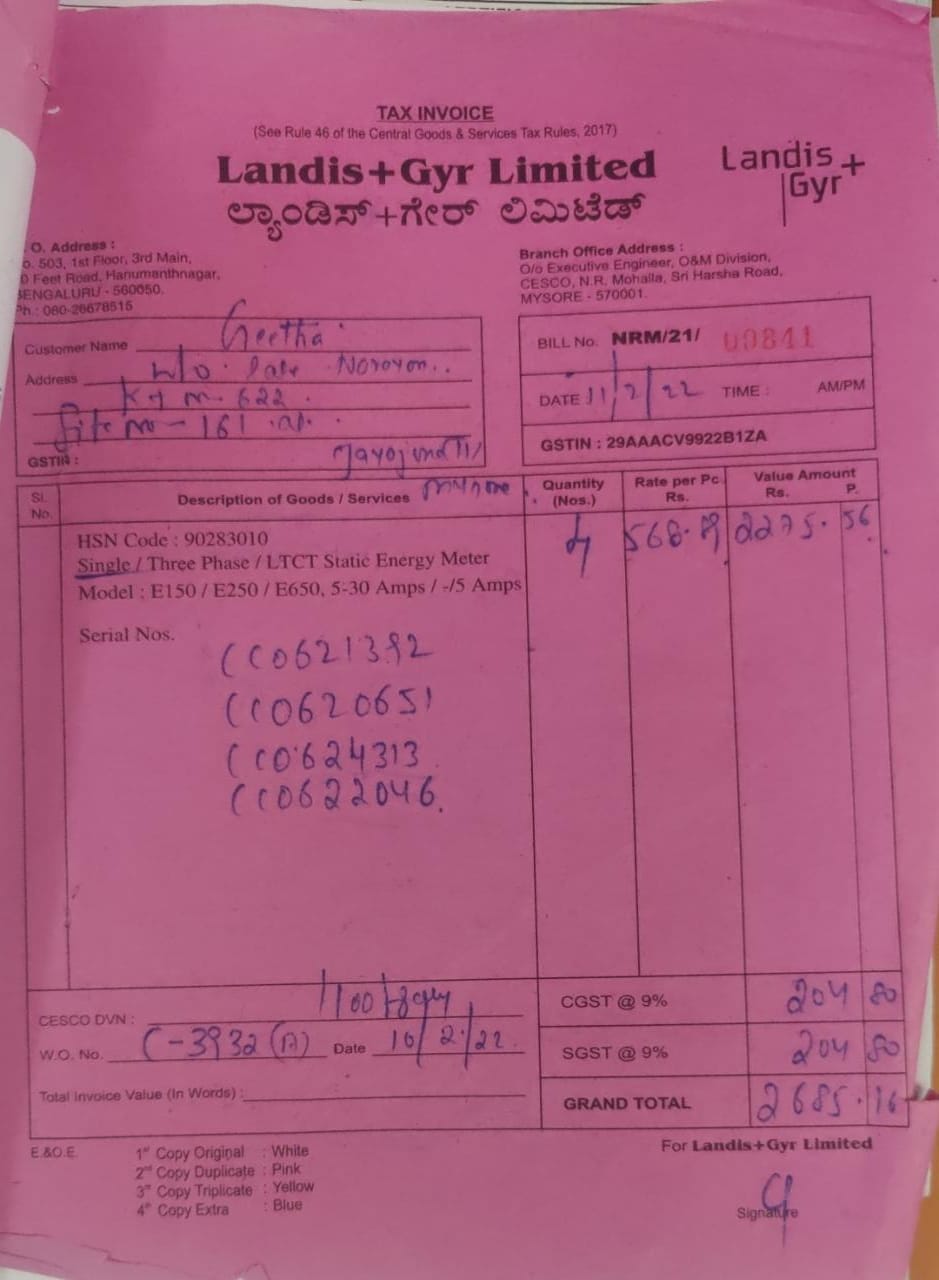 TAX INVOICE
(See Rule 46 of the Central Goods & Services Tax Rules, 2017)
Landis+Gyr Limited
ಲ್ಯಾಂಡಿಸ್+ಗೇರ್ ಲಿಮಿಟೆಡ್
Landis+
Gyr
O. Address :
503, 1st Floor, 3rd Main,
Feet Road, Hanumanthnagar,
BENGALURU - 560050.
Ph.: 080-26678515
Branch Office Address :
O/o Executive Engineer, O&M Division,
CESCO, N.R. Mohalla, Sri Harsha Road,
MYSORE - 570001.
Customer Name Geetha
Address W/o. Late Narayan..
622.
Site no - 161
GSTIN :
Mysore
BILL No. NRM/21/ 00841
DATE 11/2/22 TIME : AM/PM
GSTIN : 29AAACV9922B1ZA
Sl. No. Description of Goods / Services Quantity (Nos.) Rate per Pc Rs. Value Amount Rs. P.
HSN Code : 90283010 4 568.89 2275.56
Single / Three Phase / LTCT Static Energy Meter
Model : E150 / E250 / E650, 5-30 Amps / -/5 Amps
Serial Nos.
CC0621392
CC0620651
CC0624313
CC0622046.
CESCO DVN :
W.O. No. C-3932(A) Date 10/2/22
Total Invoice Value (In Words) :
CGST @ 9% 204 80
SGST @ 9% 204 80
GRAND TOTAL 2685.16
E.&O.E.
1st Copy Original : White
2nd Copy Duplicate : Pink
3rd Copy Triplicate : Yellow
4th Copy Extra : Blue
For Landis+Gyr Limited
Signature